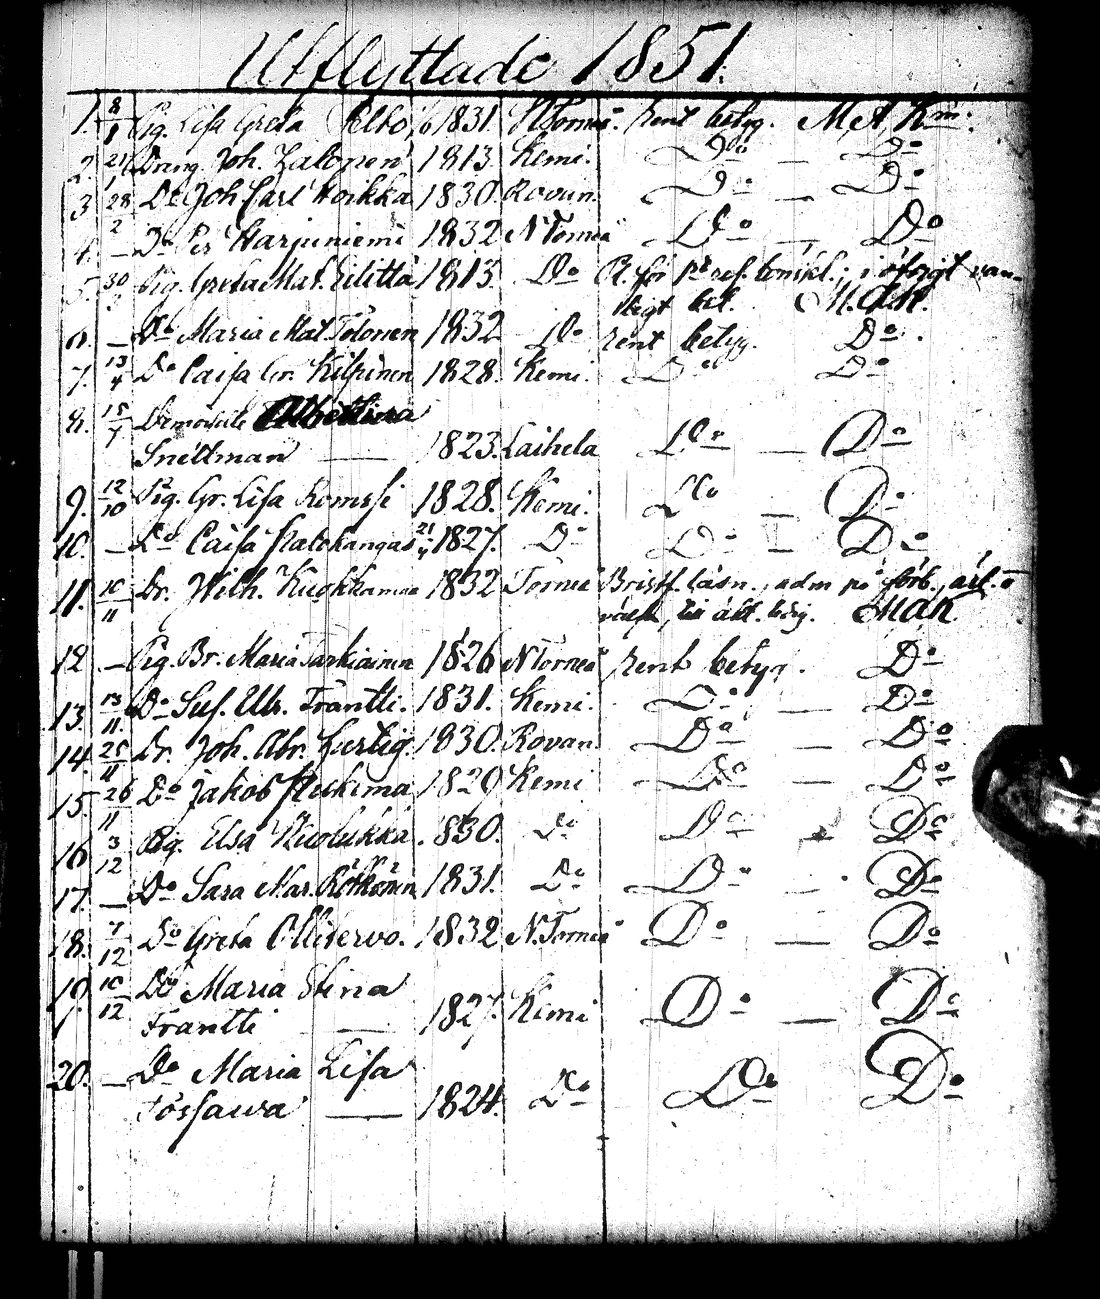 Utflyttade 1851.
1. 8/1 Pig. Lisa Greta 1831. NTorneå. rent betyg. MAKm:
2. 21/1 Dräng. Joh. 1813 Kemi. Do — Do
3. 28 Do Joh Carl Koikka 1830. Rovan. Do — Do
4. 2 — Do Per Harjuniemi 1832 NTorneå Do — Do
5. 30/2 Pig. Greta Mat. 1813. Do för i öfrigt van-
ligt bet. M.Ak.
6. — Do Maria Mat. Tolonen 1832 Do rent betyg. Do.
7. 13/4 Do Caisa Gr. Kilpinen 1828. Kemi. Do Do
8. 15/7 Demoiselle Albertina
Snellman — 1823. Laihela Do — Do
9. 12/10 Pig. Gr. Lisa Romsi 1828. Kemi. Do — Do
10. — Do Caisa Palokangas 21/4 1827. Do Do — Do
11. 10/11 Dr. Wilh. 1832 Torneå Bristf. läsn., adm på förb., art. o
MAK
12 — Pig. Br. Maria Tarkiainen 1826 NTorneå rent betyg. Do
13. 13/11. Do Sus. Ulr. Frantti. 1831. Kemi. Do — Do
14. 25/11 Dr. Joh. Abr. Lustig. 1830. Rovan. Do — Do
15. 26/11 Do Jakob 1829 Kemi Do — Do
16 3/12 Pig. Elsa 1830. Do Do Do
17. — Do Sara Mar. Rötkönen 1831. Do Do — Do
18. 7/12 Do Greta Ollitervo. 1832 N.Torneå Do — Do
19. 10/12 Do Maria Stina
Frantti — 1827. Kemi Do — Do
20. — Do Maria Lisa
— 1824. Do Do Do